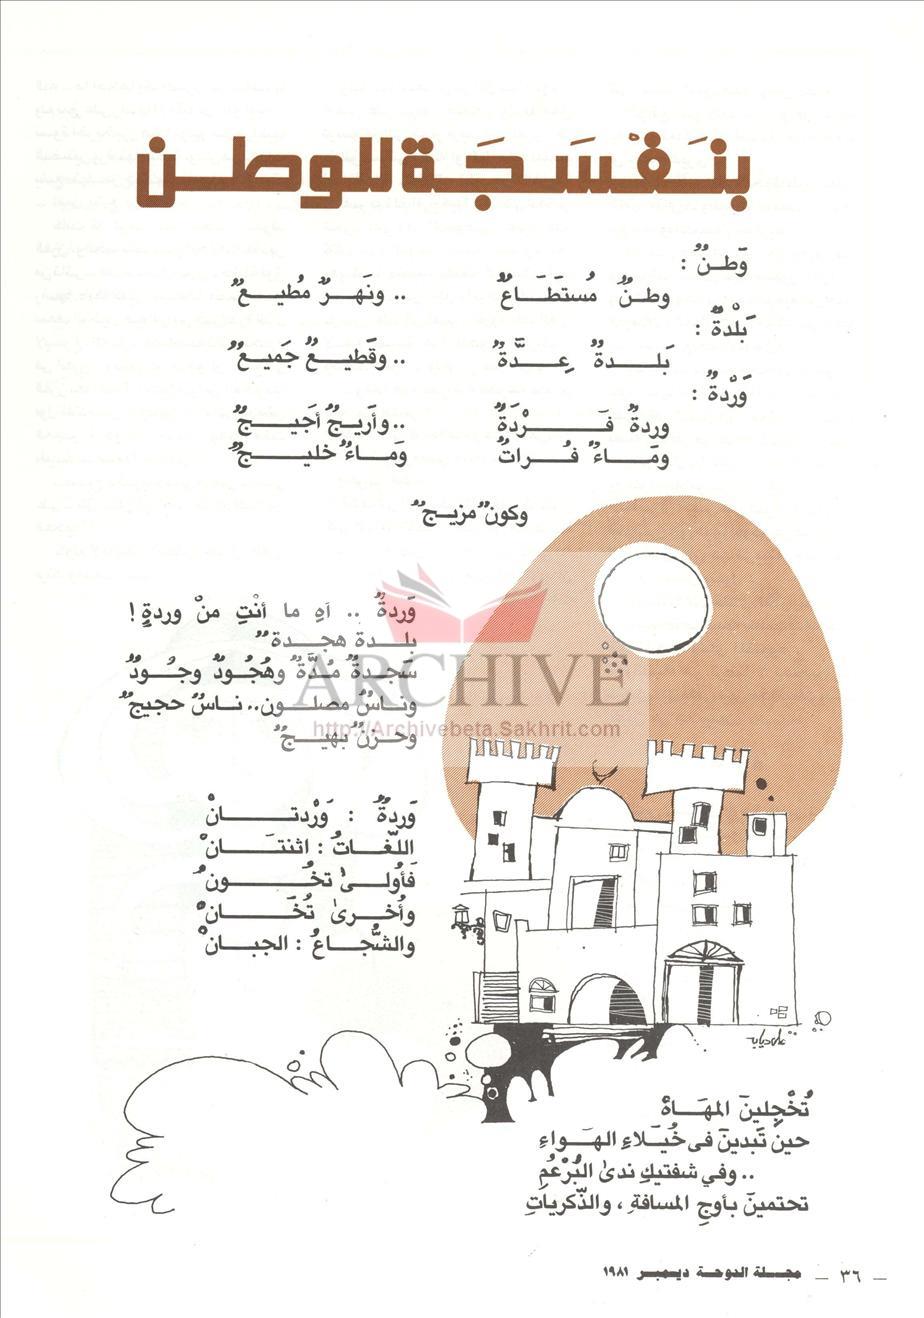 بنَفْسَجَة للوطن
وَطنٌ :
وطنٌ مُستطَاعٌ .. ونَهرٌ مُطيعٌ
بَلْدةٌ :
بَلدةٌ عِدَّةٌ .. وقَطيعٌ جَميعٌ
وَرْدةٌ :
وردةٌ فَرْدَةٌ .. وأريجٌ أجيجٌ
ومَاءٌ فُراتٌ وَماءٌ خليجٌ
وكونٌ مزيجٌ
وَردةٌ .. آهِ ما أنْتِ منْ وردةٍ !
بلدة هجدةٌ
سَجدةٌ مُدَّةٌ وهُجُودٌ وجُودٌ
وناسٌ مصلون.. ناسٌ حجيجٌ
وحزنٌ بهيجٌ
وَردةٌ : وَرْدتانْ
اللّغاتُ : اثنتَانْ
فَأُولىٰ تخُونُ
وأُخرىٰ تُخَانْ
والشُّجاعُ : الجبانْ
ARCHIVE
http://Archivebeta.Sakhrit.com
تُخْجِلينَ المهَاهْ
حينَ تَبدينَ فى خُيَلاءِ الهَواءِ
.. وفي شفتيكِ ندىٰ البُرْعُمِ
تحتمينَ بأوجِ المسافةِ ، والذّكرياتِ
_ ٣٦ _ مجلة الدوحة ديسمبر ١٩٨١